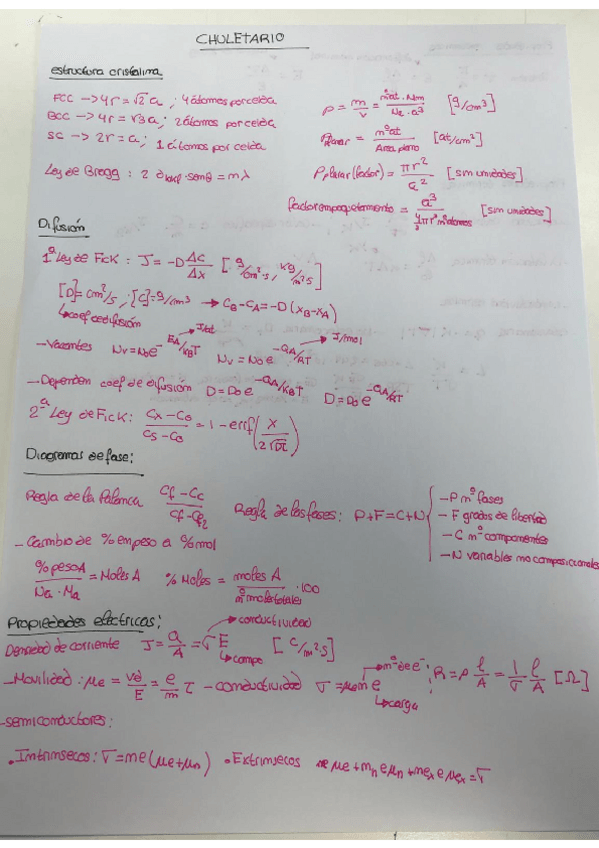 CHULETARIO
estructura cristalina
FCC → 4r = √2 a ; 4 átomos por celda
BCC → 4r = √3 a ; 2 átomos por celda
SC → 2r = a ; 1 átomos por celda
Ley de Bragg : 2 dhkl · senθ = nλ
ρ = m/v = nºat · Nm / Na · a³ [g/cm³]
ρplanar = nºat / Area plano [at/cm²]
ρplanar (factor) = πr² / a² [sin unidades]
factor empaquetamiento = a³ / 4/3 πr³ nºátomos [sin unidades]
Difusión
1ª Ley de Fick : J = -D Δc/Δx [g/cm²·s, kg/m²·s]
[D] = cm²/s ; [C] = g/cm³ → CB - CA = -D (xB - xA)
↳ coef de difusión
- Vacantes Nv = No e^-EA/KBT → J/at Nv = No e^-QA/RT → J/mol
- Dependen coef de difusión D = Do e^-QA/KBT D = Do e^-QA/RT
2ª Ley de Fick : Cx - Co / Cs - Co = 1 - erf (x / 2√Dt)
Diagramas de fase:
Regla de la Palanca Cf - Cc / Cf -
Regla de las fases: P + F = C + N
- P nº fases
- F grados de libertad
- C nº componentes
- N variables no composicionales
- Cambio de % en peso a % mol
% peso A / Na · Ma = Moles A % Moles = moles A / nº moles totales · 100
Propiedades eléctricas:
Densidad de corriente J = q/A = σ E [C/m²·s]
→ conductividad
↳ campo
- Movilidad : μe = vd/E = e/m τ - conductividad σ = μe n e
→ nº de e⁻
↳ carga
R = ρ l/A = 1/σ l/A [Ω]
- semiconductores:
• Intrínsecos: σ = ne (μe + μn) • Extrínsecos ne μe + nn e μn + nex e μex = σ